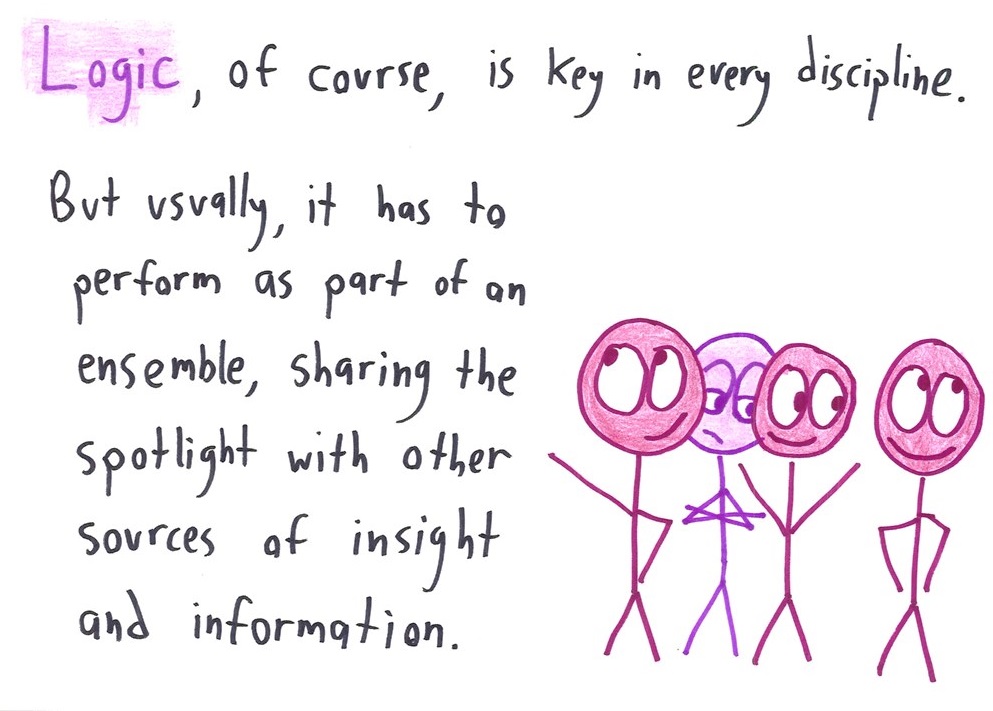 Logic, of course, is key in every discipline.
But usually, it has to
perform as part of an
ensemble, sharing the
spotlight with other
sources of insight
and information.